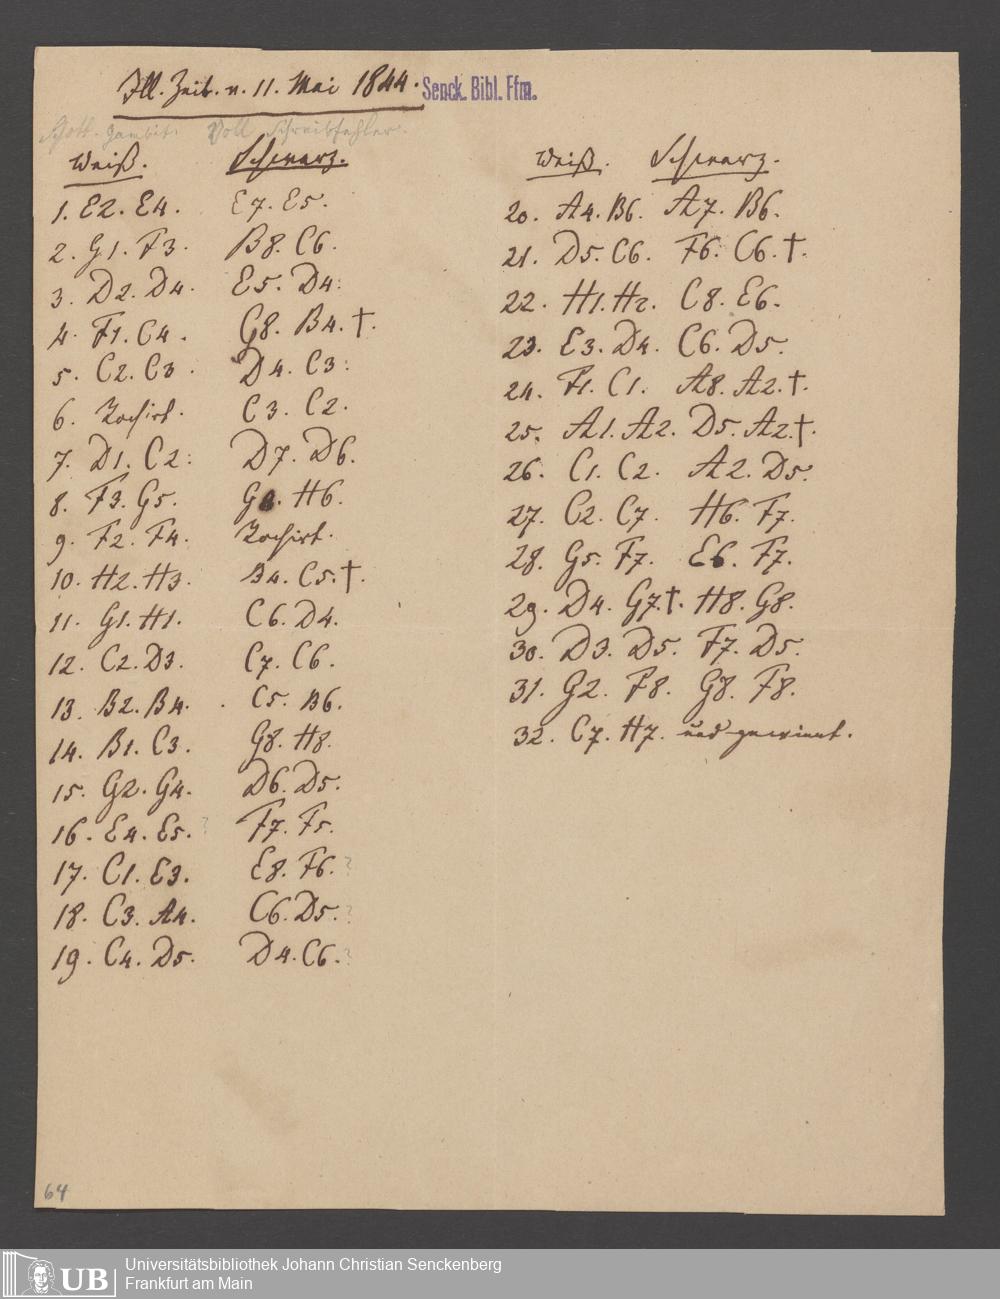 Ill. Zeit. v. 11. Mai 1844. Senck. Bibl. Ffm.
Schott. Gambit. Voll Schreibfehler.
Weiß. Schwarz.
1. E2. E4. E7. E5.
2. G1. F3. B8. C6.
3. D2. D4. E5. D4:
4. F1. C4. G8. B4. †.
5. C2. C3. D4. C3:
6. Rochirt. C3. C2.
7. D1. C2: D7. D6.
8. F3. G5. G8. H6.
9. F2. F4. Rochirt.
10. H2. H3. B4. C5. †.
11. G1. H1. C6. D4.
12. C2. D3. C7. C6.
13. B2. B4. C5. B6.
14. B1. C3. G8. H8.
15. G2. G4. D6. D5.
16. E4. E5. ? F7. F5.
17. C1. E3. E8. F6. ?
18. C3. A4. C6. D5. ?
19. C4. D5. D4. C6. ?
Weiß. Schwarz.
20. A4. B6. A7. B6.
21. D5. C6. F6. C6. †.
22. H1. H2. C8. E6.
23. E3. D4. C6. D5.
24. F1. C1. A8. A2. †.
25. A1. A2. D5. A2. †.
26. C1. C2. A2. D5.
27. C2. C7. H6. F7.
28. G5. F7. E6. F7.
29. D4. G7. †. H8. G8.
30. D3. D5. F7. D5.
31. G2. F8. G8. F8.
32. C7. H7. und gewinnt.
64
UB
Universitätsbibliothek Johann Christian Senckenberg
Frankfurt am Main